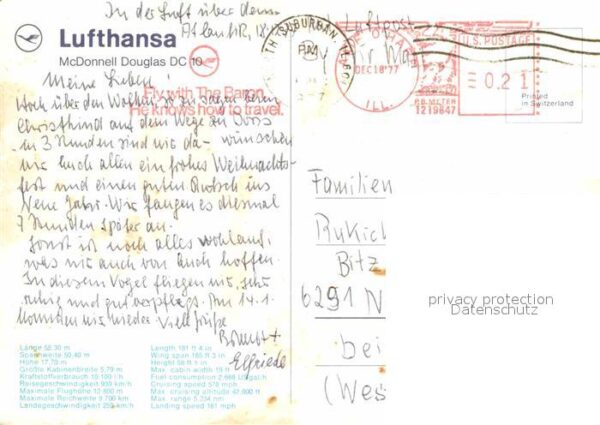 In der Luft über dem
Atlantik, 18.
Lufthansa
McDonnell Douglas DC 10
Meine Lieben!
Fly with The Baron
He knows how to travel.
Hoch über den Wolken so zu sagen beim
Christkind auf dem Wege zu Doris
in 3 Stunden sind wir da - wünschen
wir Euch allen ein frohes Weihnachts-
fest und einen guten Rutsch ins
Neue Jahr. Wir fangen es diesmal
7 Stunden später an.
Sonst ist noch alles wohlauf,
was wir auch von Euch hoffen.
In diesem Vogel fliegen wir sehr
ruhig und gut verpflegt. Am 14.1.
kommen wir wieder. Viele Grüße
Elfriede
Länge 55,30 m
Spannweite 50,40 m
Höhe 17,70 m
Größte Kabinenbreite 5,79 m
Kraftstoffverbrauch 10.100 l/h
Reisegeschwindigkeit 930 km/h
Maximale Flughöhe 12.800 m
Maximale Reichweite 9.700 km
Landegeschwindigkeit 250 km/h
Length 181 ft 4 in
Wing span 165 ft 3 in
Height 58 ft 1 in
Max. cabin width 19 ft
Fuel consumption 2,668 US gal/h
Cruising speed 578 mph
Max. cruising altitude 42,000 ft
Max. range
Landing speed 161 mph
Luftpost
Air Mail
TH SUBURBAN, IL 604
PM
DEC 18'77
ILL.
U.S. POSTAGE
0.21
P.B. METER
1219847
Printed
in Switzerland
Familien
Rukich
Bitz
6291 N
bei
(Wes
privacy protection
Datenschutz